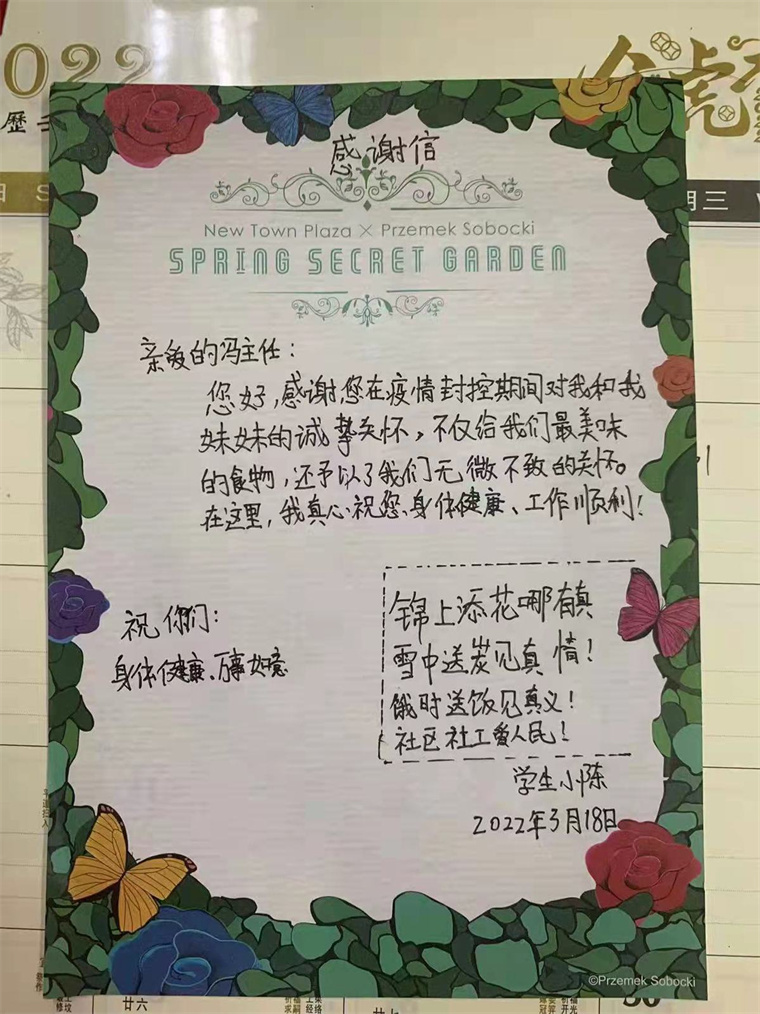 2022
感谢信
New Town Plaza × Przemek Sobocki
SPRING SECRET GARDEN
亲爱的冯主任：
您好，感谢您在疫情封控期间对我和我
妹妹的诚挚关怀，不仅给我们最美味
的食物，还予以了我们无微不致的关怀。
在这里，我真心祝您、身体健康、工作顺利！
祝你们：
身体健康、万事如意
锦上添花哪有真
雪中送炭见真情！
饿时送饭见真义！
社区社工爱人民！
学生小陈
2022年3月18日
©Przemek Sobocki
廿六